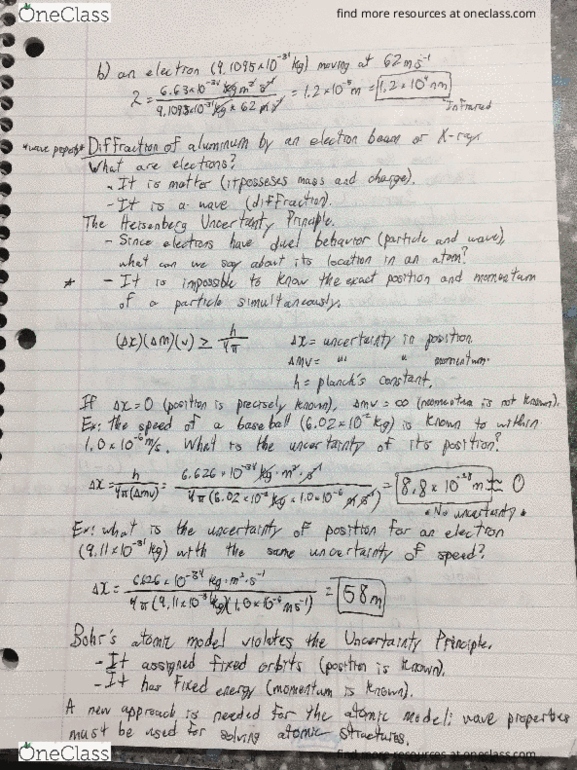 OneClass
find more resources at oneclass.com
b) an electron (9.1095×10⁻³¹ kg) moving at 62 ms⁻¹
λ = 6.63×10⁻³⁴ kg m² s⁻¹ / 9.1095×10⁻³¹ kg × 62 m s⁻¹ = 1.2×10⁻⁵ m = 1.2×10⁴ nm
Infrared
*wave property* Diffraction of aluminum by an electron beam or X-rays
What are electrons?
- It is matter (it posseses mass and charge).
- It is a wave (diffraction).
The Heisenberg Uncertanty Principle.
- Since electrons have duel behavior (particle and wave),
what can we say about its location in an atom?
* - It is impossible to know the exact position and momentum
of a particle simultaneously.
(Δx)(Δm)(v) ≥ h / 4π   Δx = uncertainty in position
Δmv = "" " momentum.
h = planck's constant.
If Δx = 0 (position is precisely known), Δmv = ∞ (momentum is not known).
Ex: the speed of a baseball (6.02×10⁻² kg) is known to within
1.0×10⁻⁶ m/s. What is the uncertainty of its position?
Δx = h / 4π(Δmv) = 6.626×10⁻³⁴ kg·m²·s⁻¹ / 4π(6.02×10⁻² kg × 1.0×10⁻⁶ m s⁻¹) = 8.8×10⁻²⁸ m ≈ 0
* No uncertainty *
Ex: what is the uncertainty of position for an electron
(9.11×10⁻³¹ kg) with the same uncertainty of speed?
Δx = 6.626×10⁻³⁴ kg·m²·s⁻¹ / 4π(9.11×10⁻³¹ kg)(1.0×10⁻⁶ ms⁻¹) = 58 m
Bohr's atomic model violates the Uncertainty Principle.
- It assigned fixed orbits (position is known).
- It has fixed energy (momentum is known).
A new approach is needed for the atomic model: wave properties
must be used for solving atomic structures.
OneClass
find more resources at oneclass.com